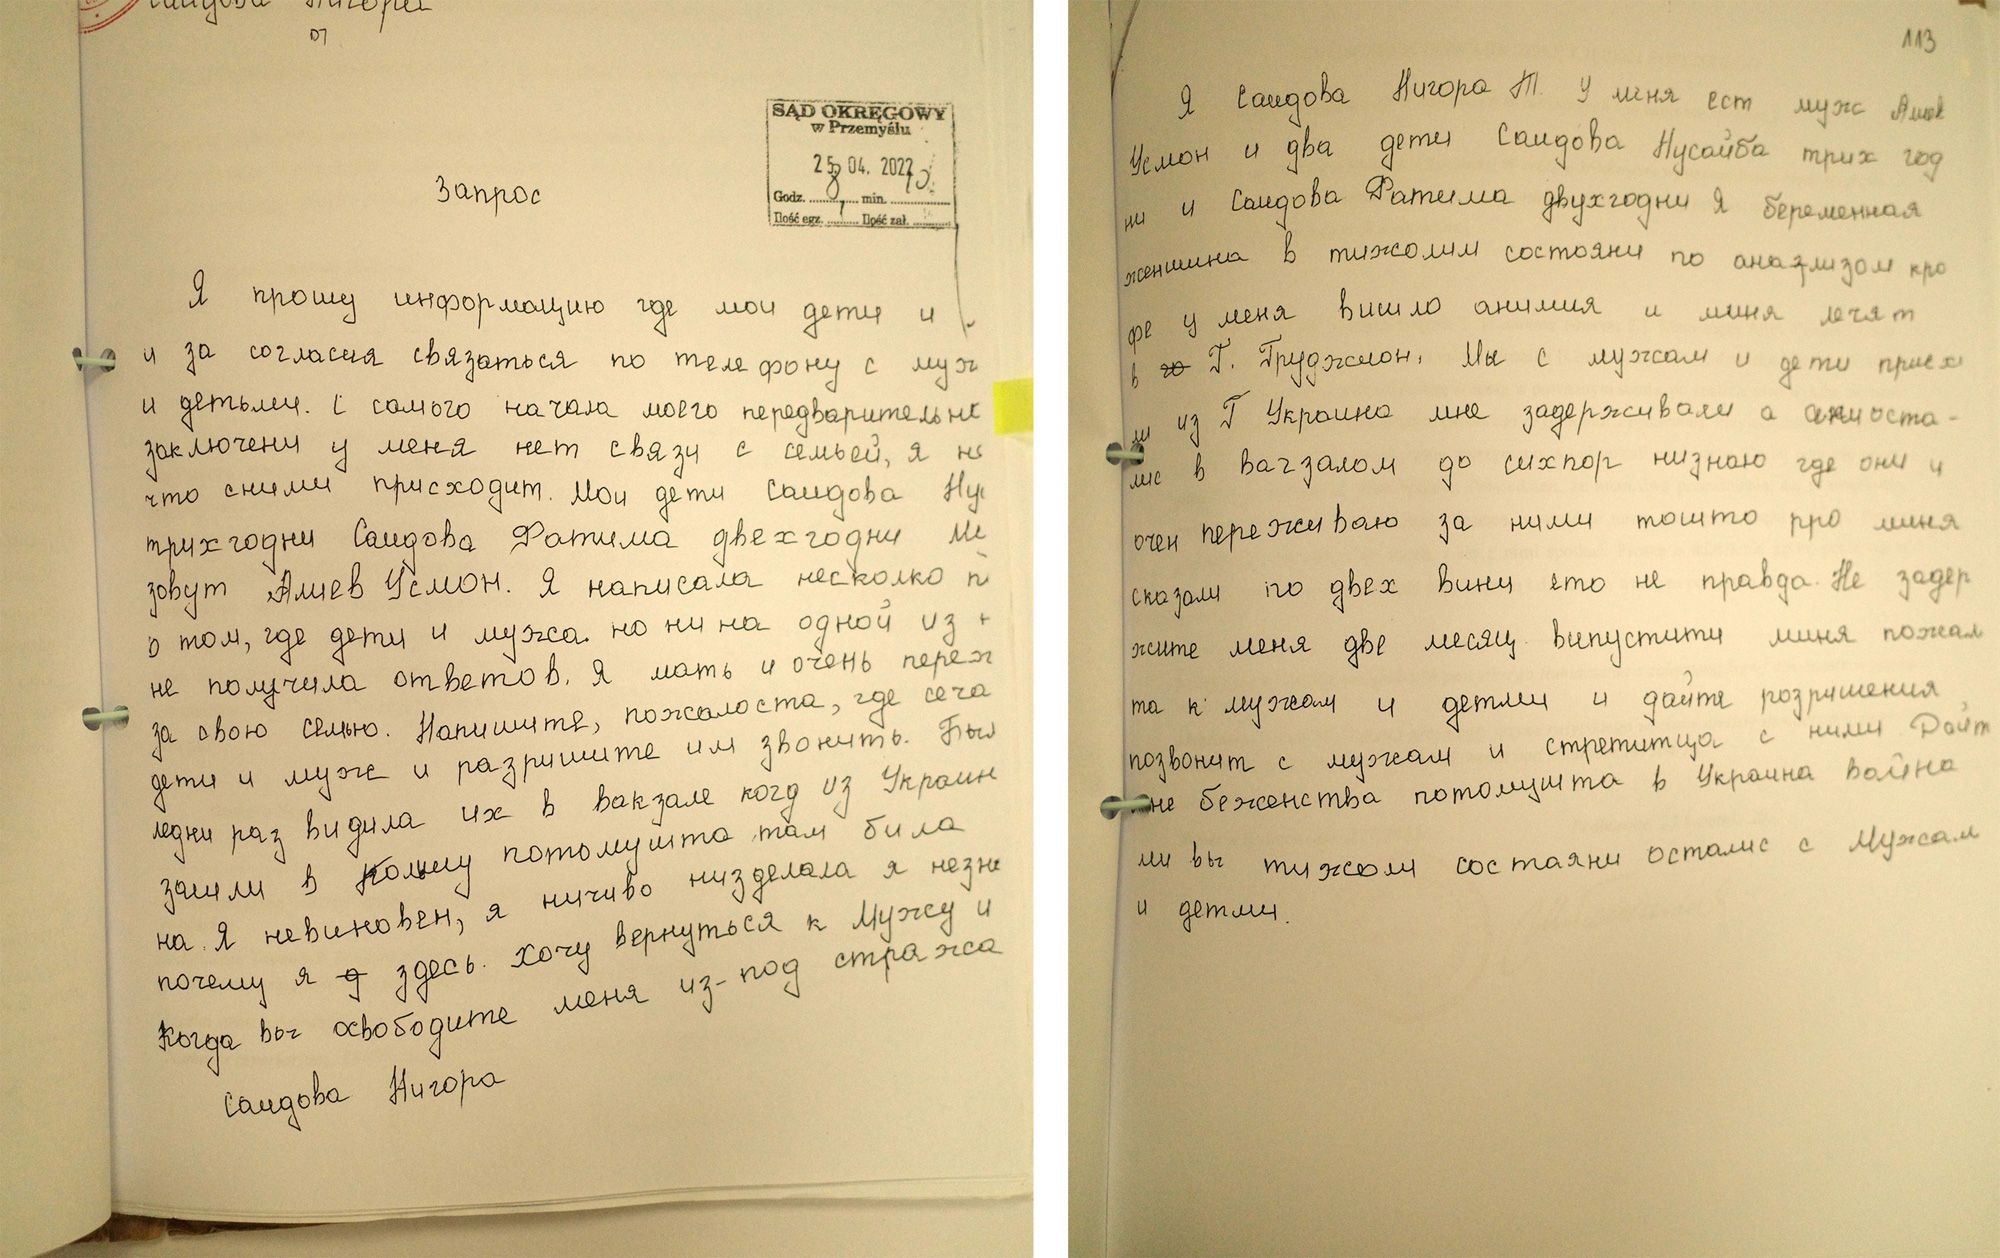 Саидова Нигора
SĄD OKRĘGOWY
w Przemyślu
25 04. 2022
Godz. 8 min. 10
Ilość egz. 1 Ilość zał.
Запрос
Я прошу информацию где мои дети и
и за согласия связаться по телефону с муж
и детьми. С самого начала моего передварительно
заключени у меня нет связи с семьей, я не
что сними присходит. Мои дети Саидова Нус
трихгодни Саидова Фатима двехгодни Ме
зовут Алиев Усмон. Я написала несколко п
о том, где дети и мужа. но ни на одной из н
не получила ответов. Я мать и очень переж
за свою семью. Напишите, пожалоста, где сеча
дети и муж и разришите им звонить. Был
ледни раз видила их в вакзале когд из Украин
зашли в Полшу потомушта там била
на. Я невиновен, я ничиво низделала я незна
почему я здесь. хочу вернуться к Мужу и
Когда вы освободите меня из-под стража
Саидова Нигора
113
Я Саидова Нигора Т. У меня ест муж Алиев
Усмон и два дети Саидова Нусайба трих год
ни и Саидова Фатима двухгодни Я беременная
женшина в тижолим состояни по анализом кро
фе у меня вишло анимия и миня лечят
в Г. Груджион. Мы с мужам и дети приех
ли из Г Украина мне задерживали а они оста-
лис в вагзалом до сихпор низнаю где они и
очен переживаю за ними тошто про миня
сказали по двех вини ето не правда. Не задер
жите меня две месяц. випустити миня пожал
та к мужам и детми и дайте розришения
позвонит с мужам и стретитца с ними Дайт
мне беженства потомушта в Украина война
ми вы тижоли состаяни осталис с Мужам
и детми.